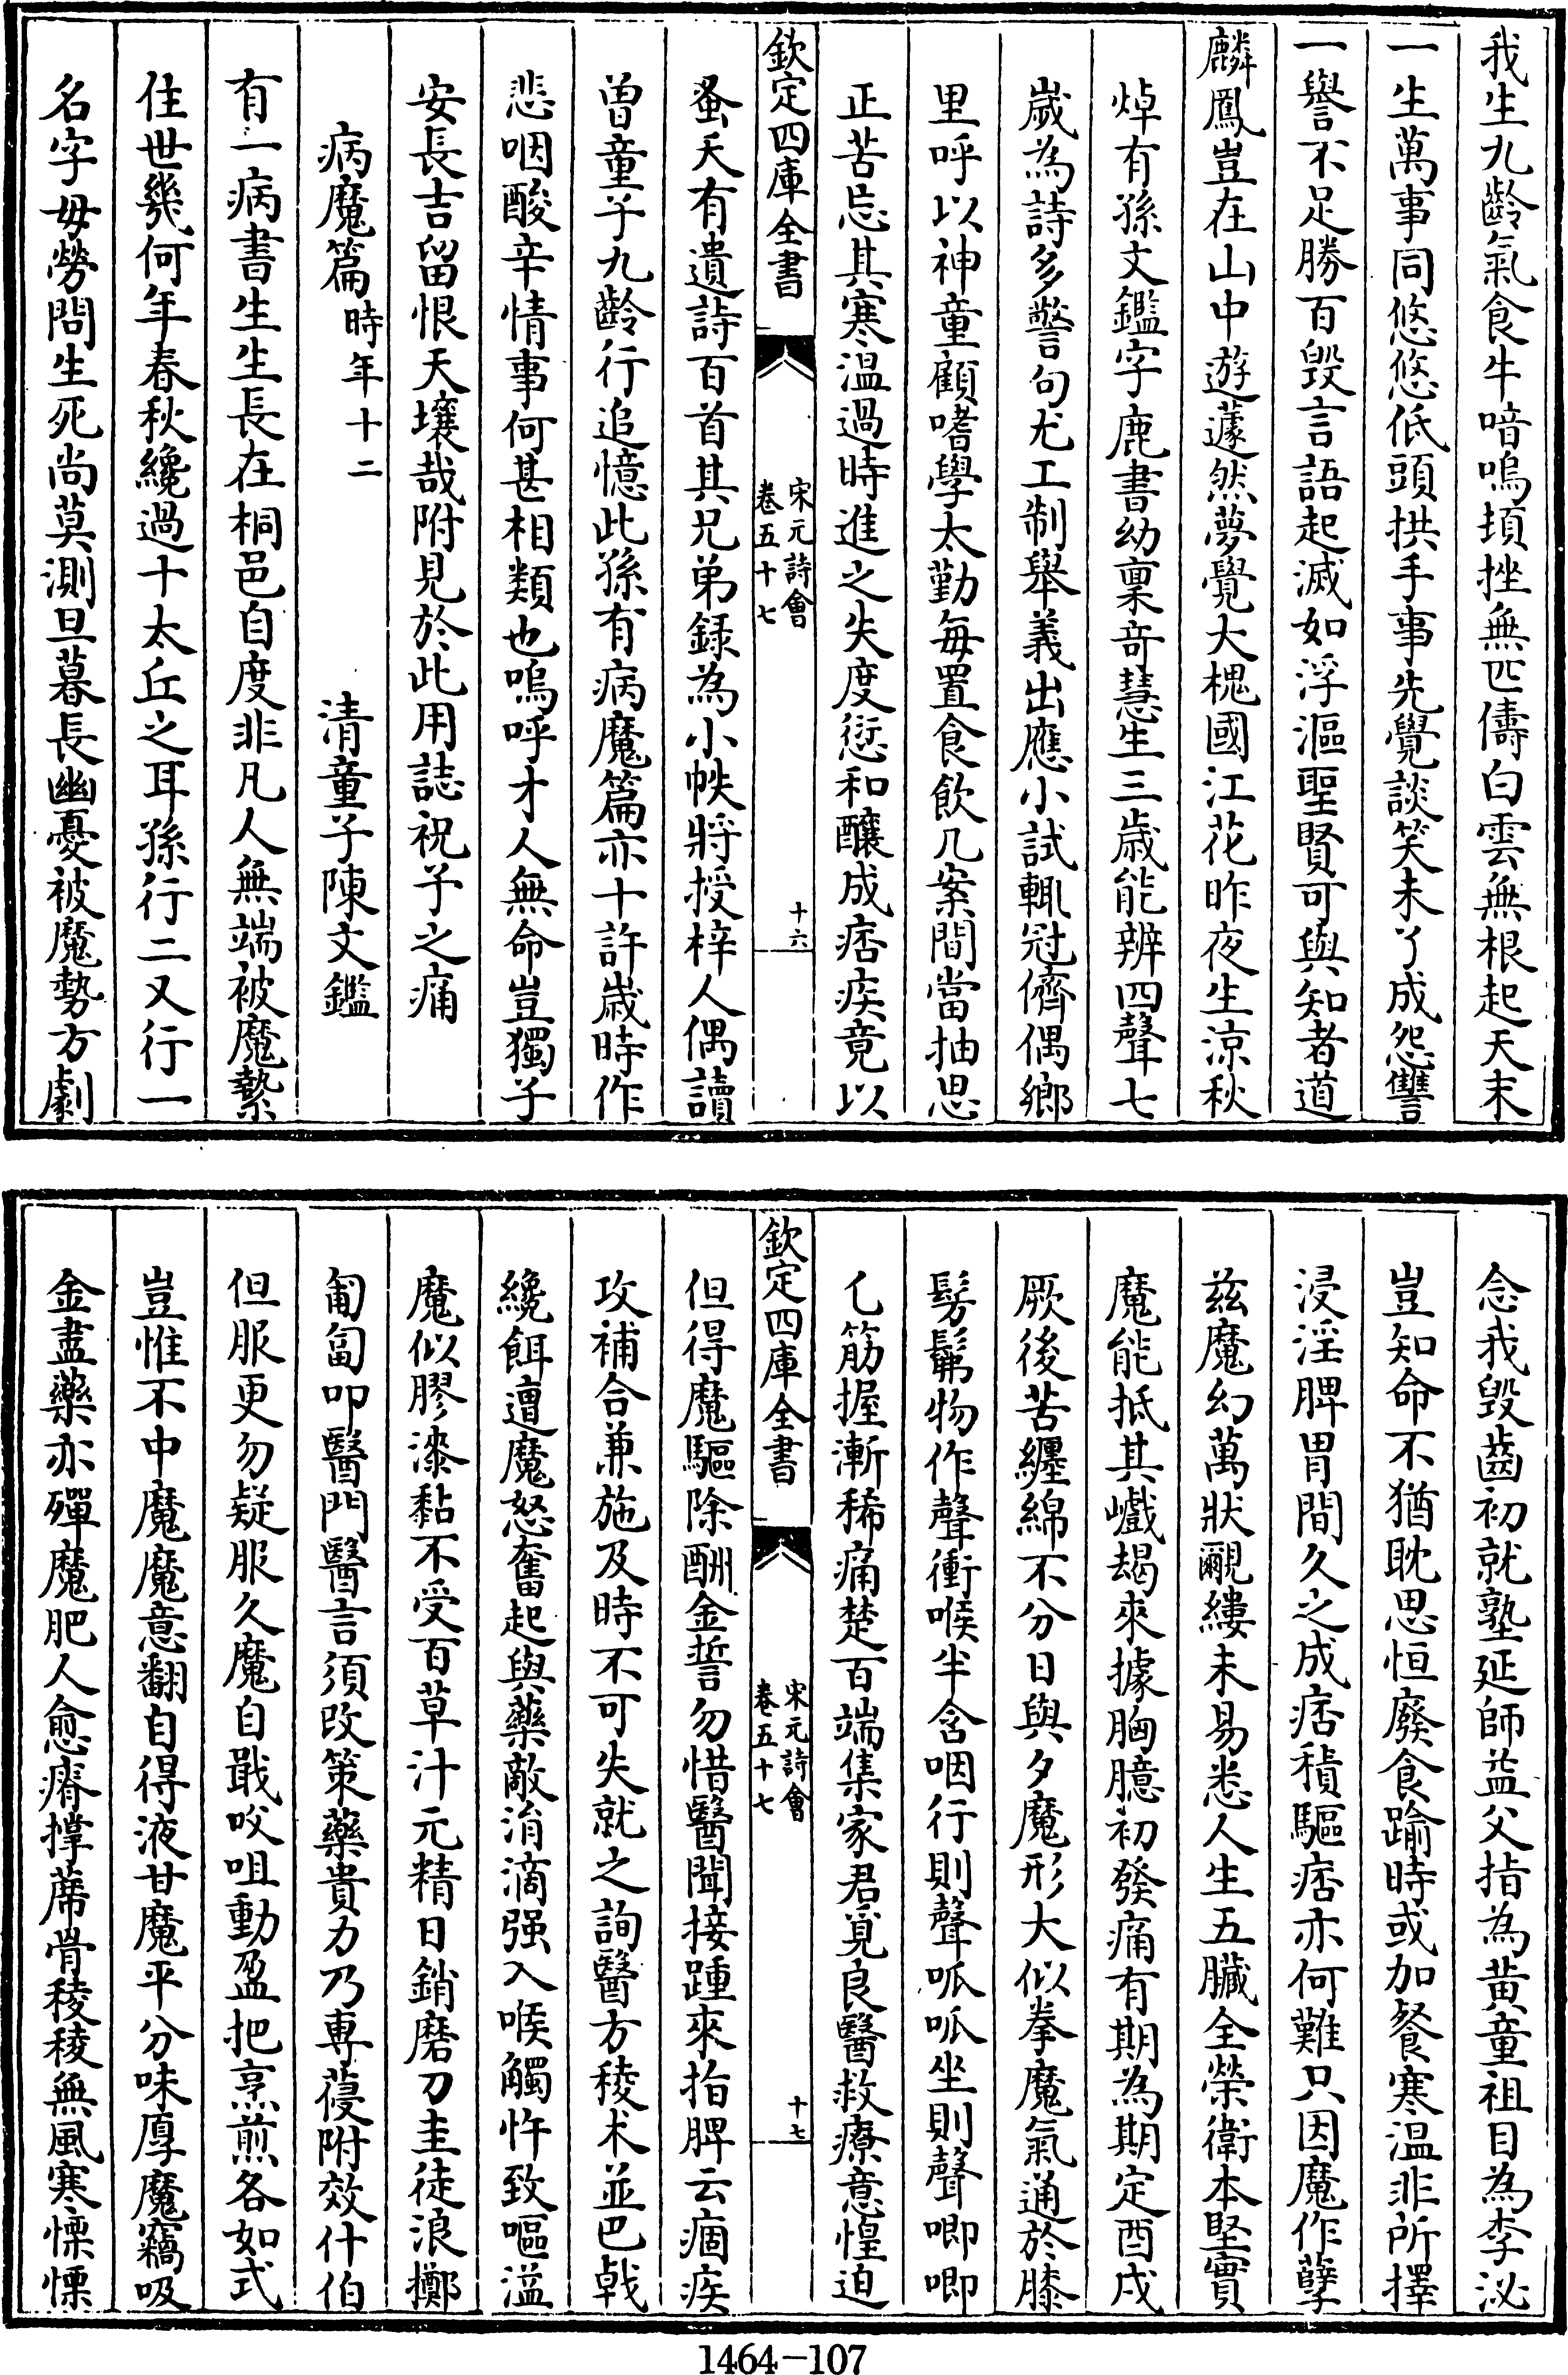 我生九齡氣食牛喑嗚頃挫無匹儔白雲無根起天末
一生萬事同悠悠低頭拱手事先覺談笑未了成怨讐
一譽不足勝百毀言語起滅如浮漚聖賢可與知者道
麟鳳豈在山中遊蘧然夢覺大槐國江花昨夜生涼秋
焯有孫文鑑字鹿書幼稟奇慧生三歲能辨四聲七
歲為詩多警句尤工制舉義出應小試輒冠儕偶鄉
里呼以神童顧嗜學太勤每置食飲几案間當抽思
正苦忘其寒溫過時進之失度愆和釀成痞疾竟以
欽定四庫全書
宋元詩會
卷五十七
十六
蚤夭有遺詩百首其兄弟録為小帙將授梓人偶讀
曾童子九齡行追憶此孫有病魔篇亦十許歲時作
悲咽酸辛情事何甚相類也嗚呼才人無命豈獨子
安長吉留恨天壤哉附見於此用誌祝予之痛
病魔篇時年十二
清童子陳文鑑
有一病書生生長在桐邑自度非凡人無端被魔縶
住世幾何年春秋纔過十太丘之耳孫行二又行一
名字毋勞問生死尚莫測旦暮長幽憂被魔勢方劇
念我毀齒初就塾延師益父指為黄童祖目為李泌
豈知命不猶耽思恒廢食踰時或加餐寒溫非所擇
浸淫脾胃間久之成痞積驅痞亦何難只因魔作孽
茲魔幻萬狀覼縷未易悉人生五臟全榮衛本堅實
魔能抵其巇朅來據胸臆初發痛有期為期定酉戌
厥後苦纏綿不分日與夕魔形大似拳魔氣通於膝
髣髴物作聲衝喉半含咽行則聲呱呱坐則聲唧唧
乞筋握漸稀痛楚百端集家君覓良醫救療意惶迫
欽定四庫全書
宋元詩會
卷五十七
十七
但得魔驅除酬金誓勿惜醫聞接踵來指脾云痼疾
攻補合兼施及時不可失就之詢醫方稜术並巴戟
纔餌遭魔怒奮起與藥敵涓滴强入喉觸忤致嘔溢
魔似膠漆黏不受百草汁元精日銷磨刀圭徒浪擲
匍匐叩醫門醫言須改策藥貴力乃專葠附效什伯
但服更勿疑服久魔自戢㕮咀動盈把烹煎各如式
豈惟不中魔魔意翻自得液甘魔平分味厚魔竊吸
金盡藥亦殫魔肥人愈瘠撑蓆骨稜稜無風寒慄慄
1464-107